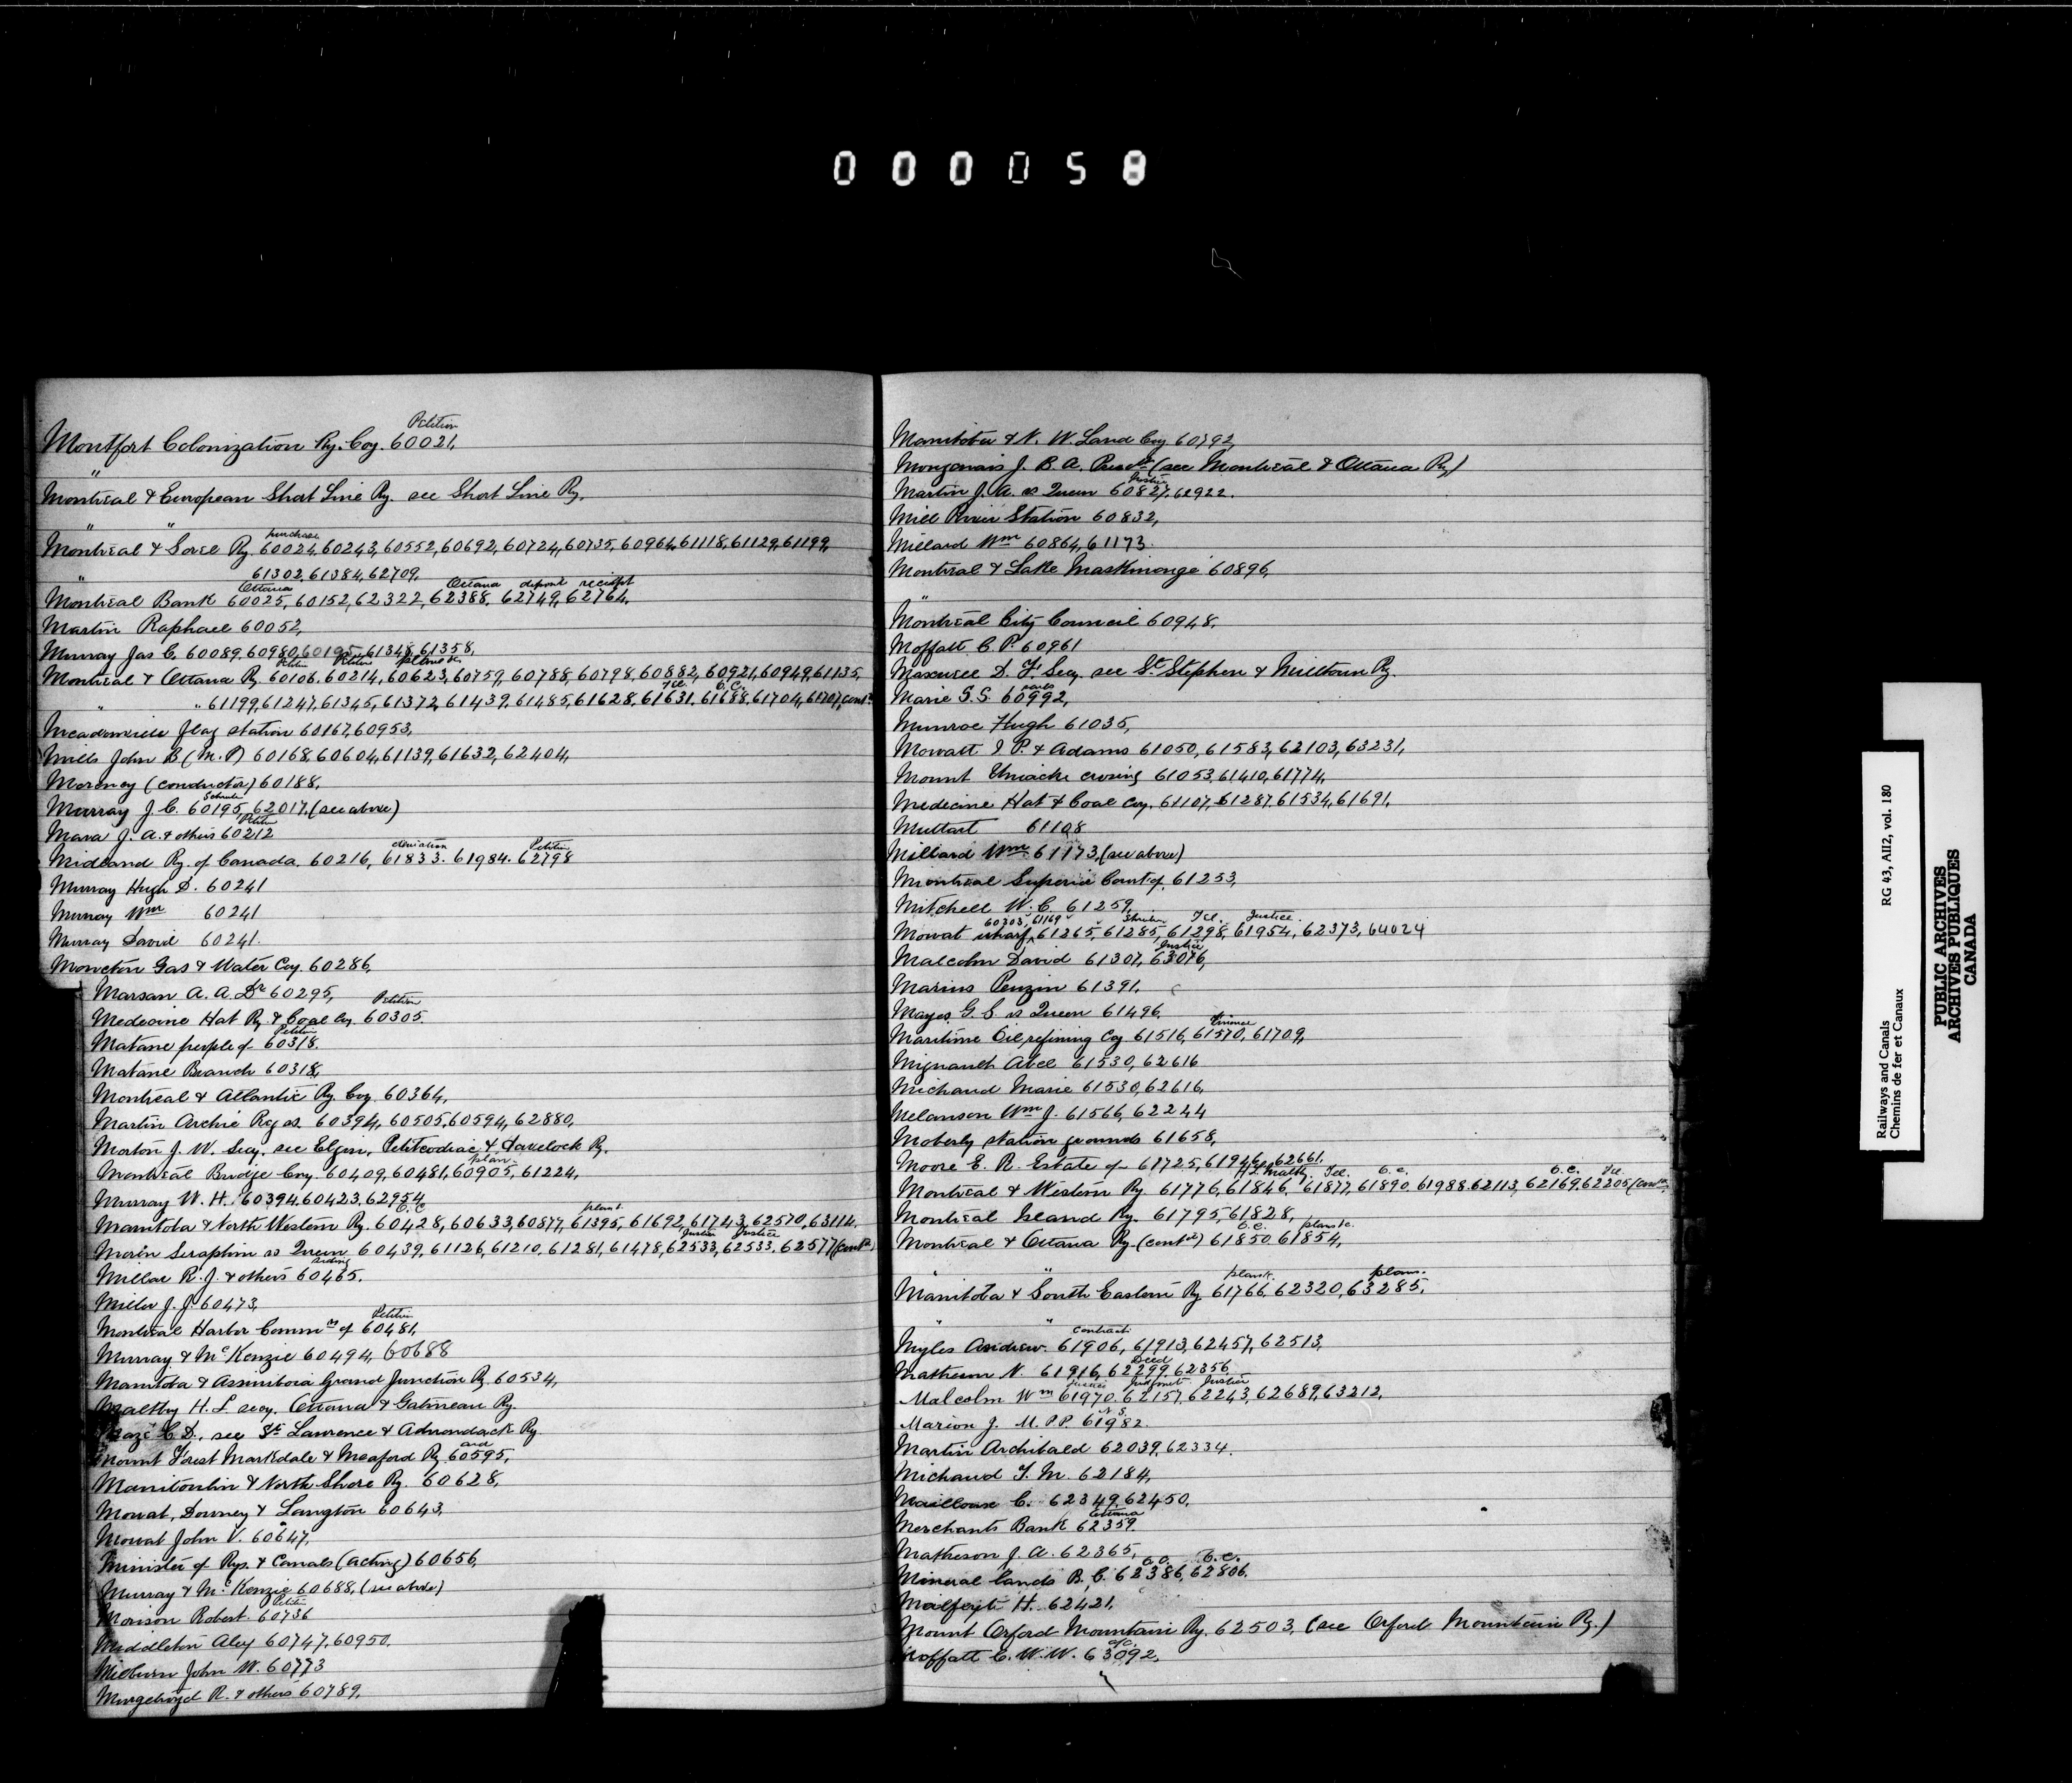 000058
Petition
Montfort Colonization Ry. Coy. 60021,
"
Montreal & European Short Line Ry. see Short Line Ry.
" "
purchase
Montreal & Sorel Ry. 60024, 60243, 60552, 60692, 60724, 60735, 60964, 61118, 61129, 61199,
" 61302, 61384, 62709,
Ottawa Ottawa deposit receipt
Montreal Bank 60025, 60152, 62322, 62388, 62749, 62764,
Martin Raphael 60052,
Murray Jas C. 60089, 60980, 60195, 61348, 61358,
Petition Petition plans &c
Montreal & Ottawa Ry. 60106, 60214, 60623, 60759, 60788, 60798, 60882, 60921, 60949, 61135,
Tel. O.C.
" " 61199, 61247, 61345, 61372, 61439, 61485, 61628, 61631, 61688, 61704, 61707, contd
Meadowville flag station 60167, 60953,
Mills John B (M.P) 60168, 60604, 61139, 61632, 62404,
Moroney (conductor) 60188,
Murray J. C. 60195, 62017, (see above)
Petition
Mara J. A. & others 60212
deviation Petition
Midland Ry. of Canada 60216, 61833. 61984. 62798
Murray Hugh D. 60241
Murray Wm 60241
Murray David 60241.
Moncton Gas & Water Coy. 60286,
Marsan A. A. Dr 60295,
Petition
Medecine Hat Ry. & Coal Coy. 60305.
Petition
Matane people of 60318.
Matane Branch 60318,
Montreal & Atlantic Ry. Coy. 60364,
Martin Archie Rog vs. 60394, 60505, 60594, 62880,
Morton J. W. Secy. see Elgin, Petitcodiac & Havelock Ry.
plan
Montreal Bridge Coy. 60409, 60481, 60905, 61224,
Murray W. H. 60394, 60423, 62954
O.C plans
Manitoba & North Western Ry. 60428, 60633, 60877, 61395, 61692, 61743, 62570, 63114.
Justice Justice
Morin Seraphin vs Queen 60439, 61126, 61210, 61281, 61478, 62533, 62533. 62577 (contd)
siding
Millar R. J. & others 60465.
Miller J. J. 60473,
Petition
Montreal Harbor Commrs of 60481,
Murray & McKenzie 60494, 60688
Manitoba & Assiniboia Grand Junction Ry. 60534,
Maltby H. L. secy. Ottawa & Gatineau Ry.
C. D., see St. Lawrence & Adirondack Ry.
aid
Mount Forest Markdale & Meaford Ry. 60595,
Manitoulin & North Shore Ry. 60628,
Mowat, Downey & Langton 60643,
Mowat John V. 60647,
Minister of Rys. & Canals (acting) 60656,
Murray & McKenzie 60688, (see above)
Petition
Morison Robert 60736
Middleton Alex 60747, 60950.
Milburn John W. 60773
Murgatroyd R. & others 60789,
Manitoba & N. W. Land Coy 60792,
Mongenais J. B. A. Presdt (see Montreal & Ottawa Ry)
Justice
Martin J. A. vs Queen 60827, 62922.
Mill River Station 60832,
Millard Wm 60864, 61173.
Montreal & Lake Maskinonge 60896,
"
Montreal City Council 60948.
Moffatt C. P. 60961
Maxwell D. F. Secy. see St. Stephen & Milltown Ry.
rails
Marie S.S. 60992,
Munroe Hugh 61035,
Mowatt J P. & Adams 61050, 61583, 62103, 63231,
Mount Uniacke crossing 61053, 61410, 61774,
Medecine Hat & Coal Coy. 61107, 61287, 61534, 61691,
Muttart 61108
Millard Wm 61173, (see above)
Montreal Superior Court of 61253,
Mitchell W. C. 61259,
60303, 61169 Tel. Justice
Mowat wharf, 61265, 61285, 61298, 61954, 62373, 64024
Justice
Malcolm David 61307, 63076,
Marius Penzin 61391.
Mayes G. S. vs Queen 61496.
Finance
Maritime Oil refining Coy 61516, 61570, 61709,
Mignault Abel 61530, 62616
Michaud Marie 61530, 62616,
Melanson Wm J. 61566, 62244
Moberly station grounds 61658,
Moore E. R. Estate of 61725, 61946, 62661.
H.L. Maltby Tel. O.C. O.C. Tel.
Montreal & Western Ry. 61776, 61846, 61877, 61890, 61988. 62113, 62169, 62205, (contd)
Montreal Island Ry. 61795, 61828,
O.C. plans &c.
Montreal & Ottawa Ry. (contd) 61850. 61854,
" " plans. plans.
Manitoba & South Eastern Ry. 61766, 62320, 63285.
" "
contract
Myles Andrew. 61906, 61913, 62457, 62513,
Deed
Matheson N. 61916, 62299, 62356
Justice Judgment Justice
Malcolm Wm 61970. 62157, 62243, 62689, 63212,
N.S.
Marion J. M.P.P. 61982.
Martin Archibald 62039, 62334.
Michaud T. M. 62184,
Mailloux C. 62349, 62450,
Ottawa
Merchants Bank 62359.
Matheson J. A. 62365,
O.C. O.C.
Mineral lands B. C. 62386, 62806.
H. 62421,
Mount Orford Mountain Ry. 62503, (see Orford Mountain Ry.)
Moffatt C. W. W. 63092,
Railways and Canals RG 43, AII2, vol. 180
Chemins de fer et Canaux
PUBLIC ARCHIVES
ARCHIVES PUBLIQUES
CANADA